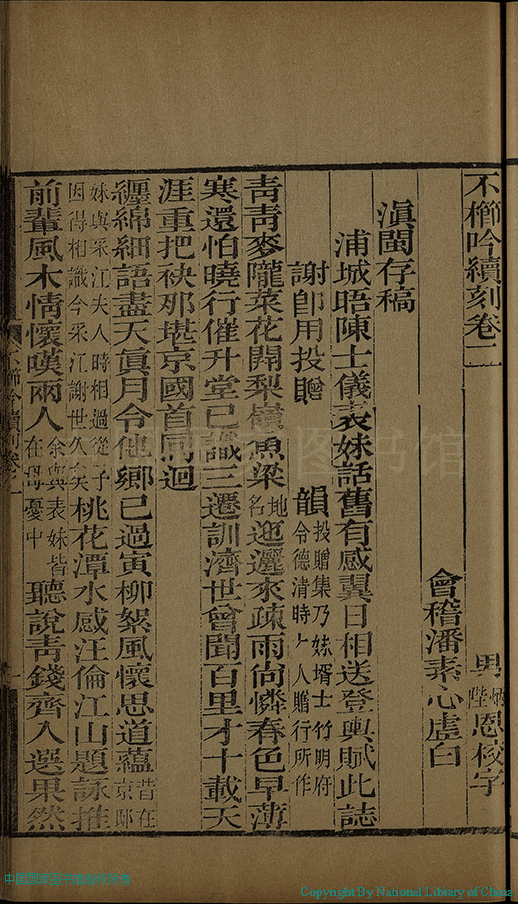 不櫛吟續刻卷二
男炳陛恩校字
會稽潘素心虛白
滇閩存稿
浦城晤陳士儀表妹話舊有感翼日相送登輿賦此誌
謝卽用投贈韻投贈集乃妹壻士竹明府令德清時人贈行所作
靑靑麥隴菜花開梨嶺魚梁地名迤邐來疎雨尙憐春色早薄
寒還怕曉行催升堂已識三遷訓濟世曾聞百里才十載天
涯重把袂那堪京國首同迴
纏綿細語盡天眞月令他鄉已過寅柳絮風懷思道蘊昔在京邸
妹與采江夫人時相過從予因得相識今采江謝世久矣桃花潭水感汪倫江山題詠推
前輩風木情懷嘆兩人余與表妹皆在母憂中聽說靑錢齊入選果然
不櫛吟續刻卷二
一
Copyright By National Library of China